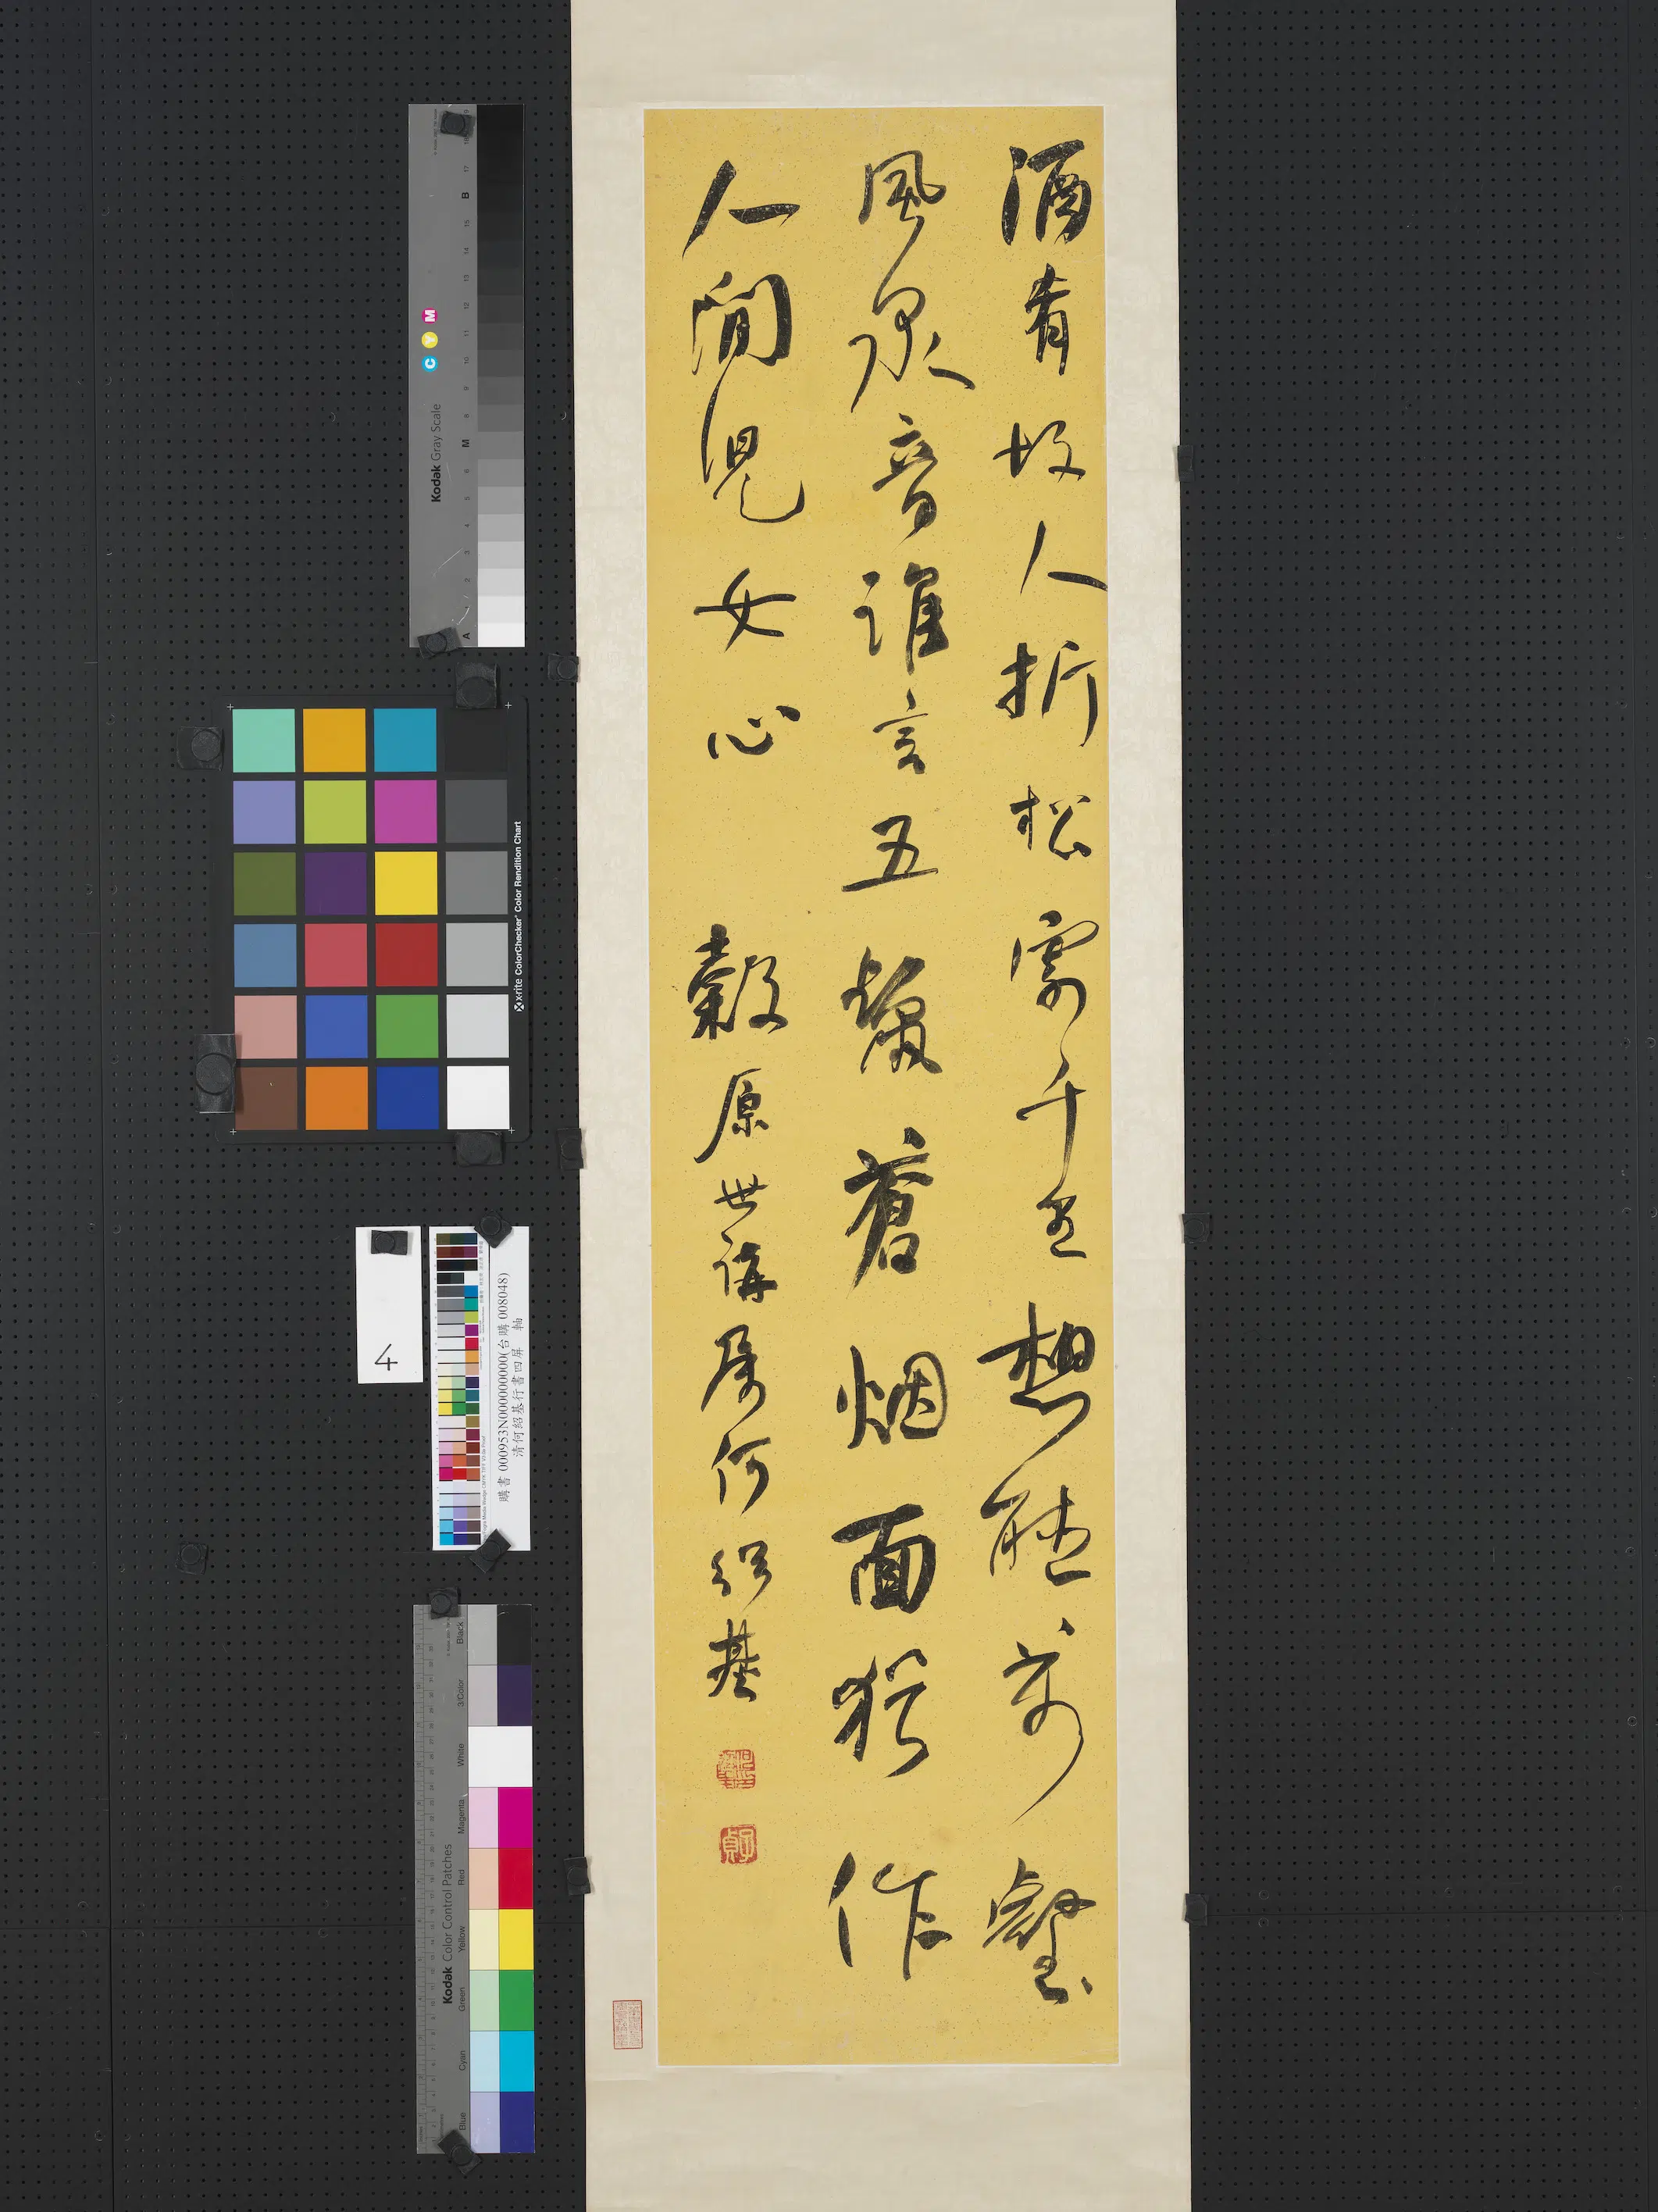 酒肴故人折松寄千里想聽萬壑
風泉音誰言五鬣蒼烟面猶作
人間兒女心 穀原世講屬何紹基
子貞
Kodak Gray Scale
C Y M
x-rite ColorChecker Color Rendition Chart
4
購書 000953N000000000(台購 008048)
清何紹基行書四屏 軸
Kodak Color Control Patches
Blue Cyan Green Yellow Red Magenta White 3/Color Black